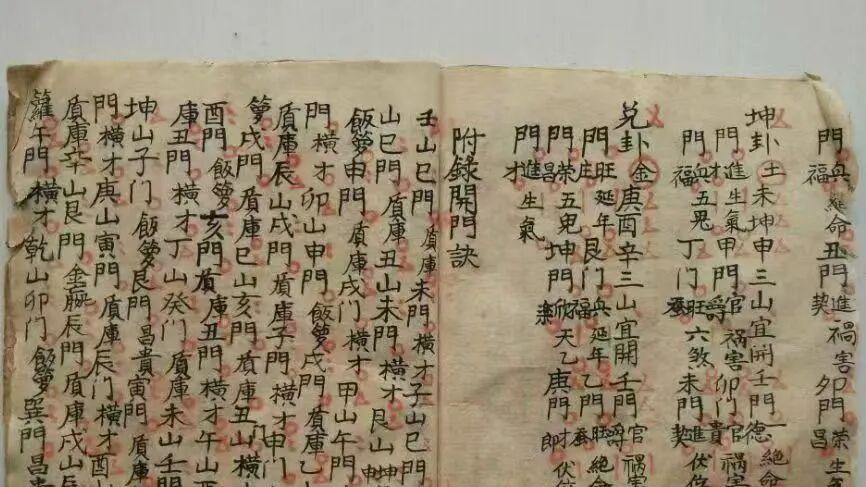 門兵絕命丑門進禍害夘門榮生氣
福　　　　　契　　　　昌
坤卦土未坤申三山宜開壬門一德絕命
門進生氣甲門官禍害卯門官禍害
才　　　　　爵　　　　貴
門血五鬼丁门旺六煞未門進伏位
福　　　　　蚕　　　　契
兌卦金庚酉辛三山宜開壬門官禍害
　　　　　　　　　　　　爵
門旺延年艮门兵延年乙門旺絕命
庄　　　　　福　　　　蚕
門荣五鬼坤門欣天乙庚門才伏位
昌　　　　　樂　　　　即
門進生氣
才
附錄開門訣
壬山巳門盾庫未門橫才子山巳門
山巳門盾庫丑山未門橫才艮山坤
飯籮申門盾庫戌门橫才甲山午門
門橫才卯山申門飯籮戌門盾庫乙
盾庫辰山戌門盾庫子門橫才申門
籮戌門盾庫巳山亥門盾庫丑山橫
酉門飯籮亥門盾庫丑門橫才午山
庫丑門橫才丁山癸門盾庫未山壬門
坤山子门飯籮艮門昌貴寅門盾庫
門橫才庚山寅門盾庫辰门橫才酉山
盾庫辛山艮門金辰門盾庫戌山
籮午門橫才乾山卯门飯籮巽門昌貴